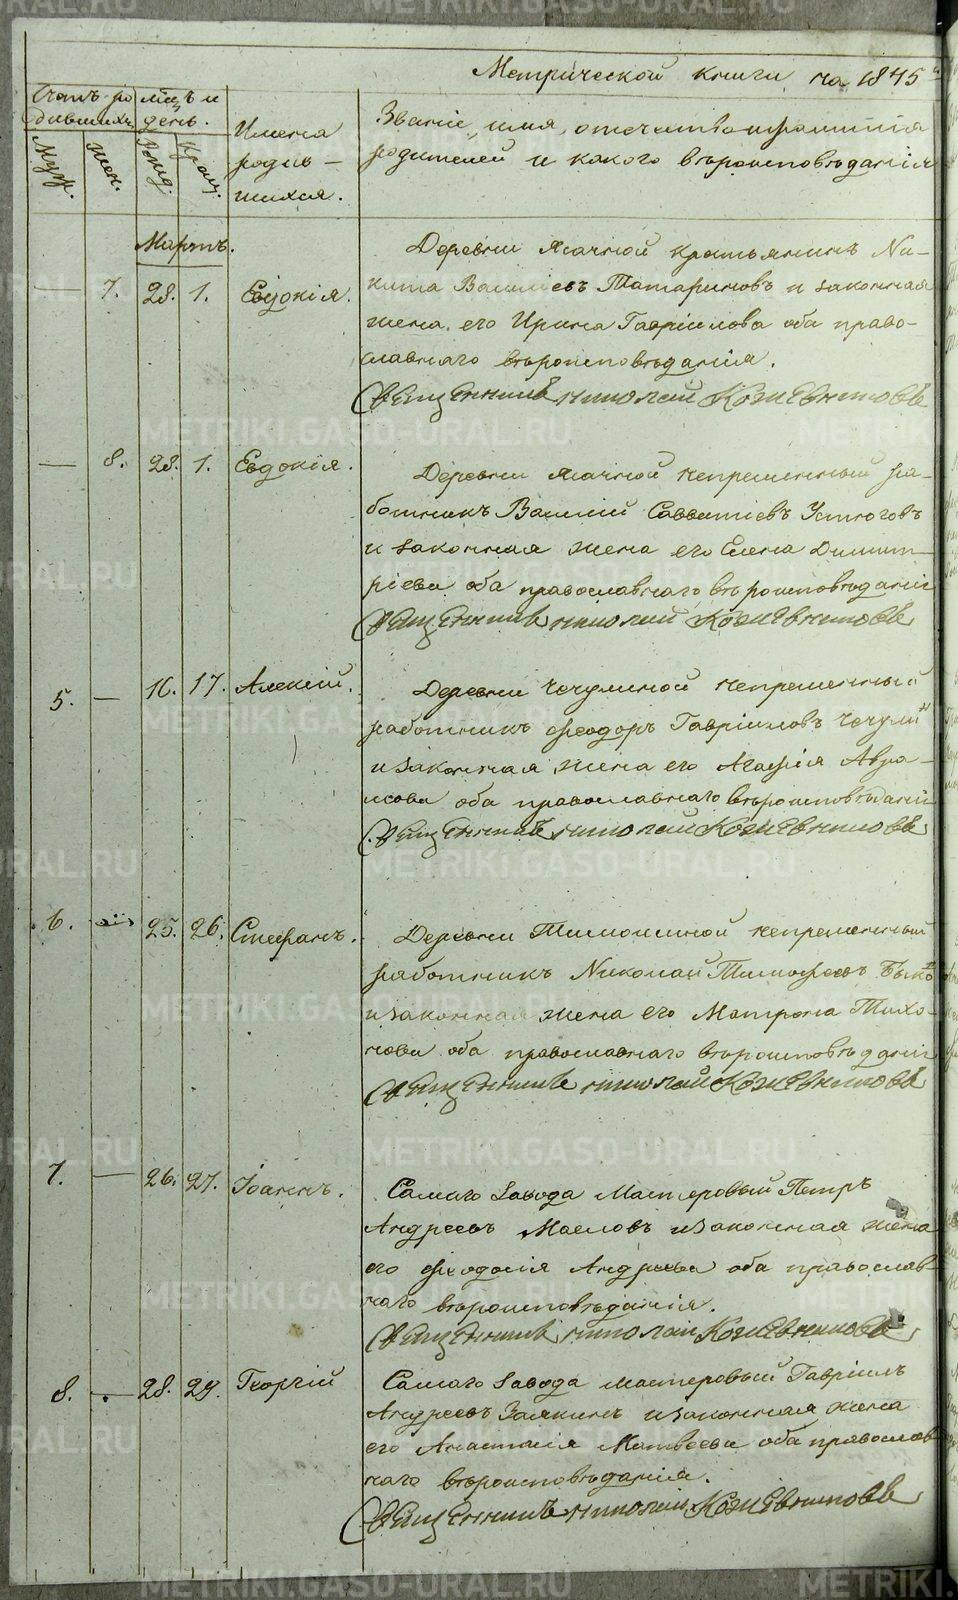 Метрической книги на 1845
Счетъ ро
дившихъ
мѣсяцъ и
день.
Муж.
Жен.
Рожд.
Крещ.
Имена
родив-
шихся.
Званіе, имя, отчество и фамилія
родителей и какого вѣроисповѣданія
Мартъ.
— 7. 28. 1. Евдокія.
Деревни Ясачной крестьянинъ Ни-
кита Васильевъ Татариновъ и законная
жена его Ирина Гавріилова оба право-
славнаго вѣроисповѣданія.
Священникъ Николай Кожевниковъ
— 8. 28. 1. Евдокія.
Деревни Ясачной непременный ра-
ботникъ Василій Савватіевъ Устюговъ
и законная жена его Елена Димит-
ріева оба православнаго вѣроисповѣданія
Священникъ Николай Кожевниковъ
5. — 16. 17. Алексій.
Деревни Чечулиной непременный
работникъ Феодоръ Гавріиловъ Чечулинъ
и законная жена его Агафія Авра-
мова оба православнаго вѣроисповѣданія
Священникъ Николай Кожевниковъ
6. — 25. 26. Стефанъ.
Деревни Тимошиной непременный
работникъ Николай Тимофеевъ Быко
и законная жена его Матрона Тихо-
нова оба православнаго вѣроисповѣданія
Священникъ Николай Кожевниковъ
7. — 26. 27. Іоаннъ.
Самаго Завода Мастеровый Петръ
Андреевъ Масловъ и законная жена
его Феодосія Андреева оба православ-
наго вѣроисповѣданія.
Священникъ Николай Кожевниковъ
8. — 28. 29. Георгій
Самаго Завода мастеровый Гавріилъ
Андреевъ Заякинъ и законная жена
его Анастасія Матвѣева оба православ
наго вѣроисповѣданія.
Священникъ Николай Кожевниковъ
METRIKI.GASO-URAL.RU